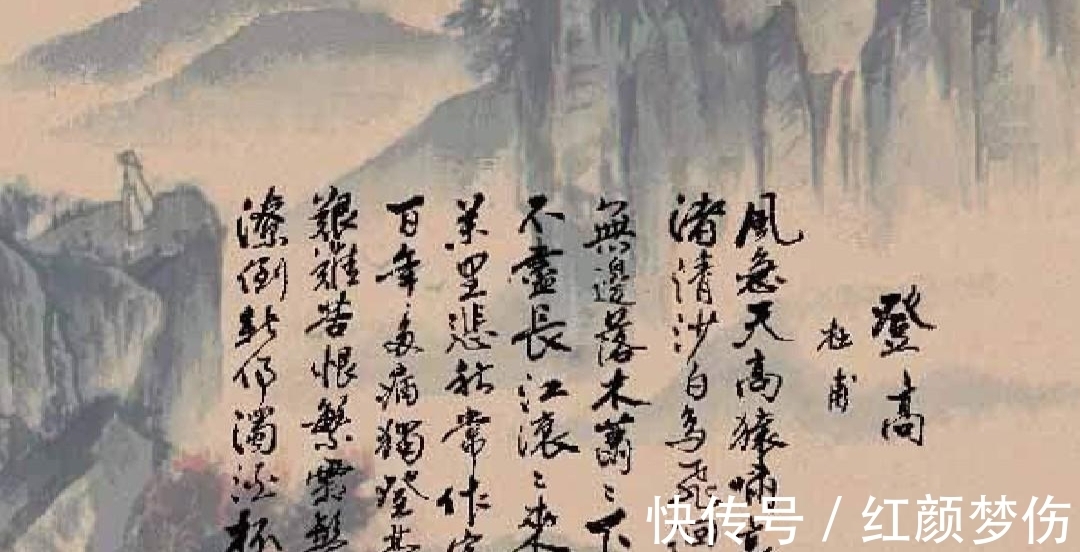 登高
杜甫
風急天高猿啸
渚清沙白鸟飛
無邊落木蕭〻下
不盡長江滚〻来
万里悲秋常作客
百年多病獨登
艱難苦恨繁霜鬢
潦倒新停濁酒杯
快传号 / 红颜梦伤